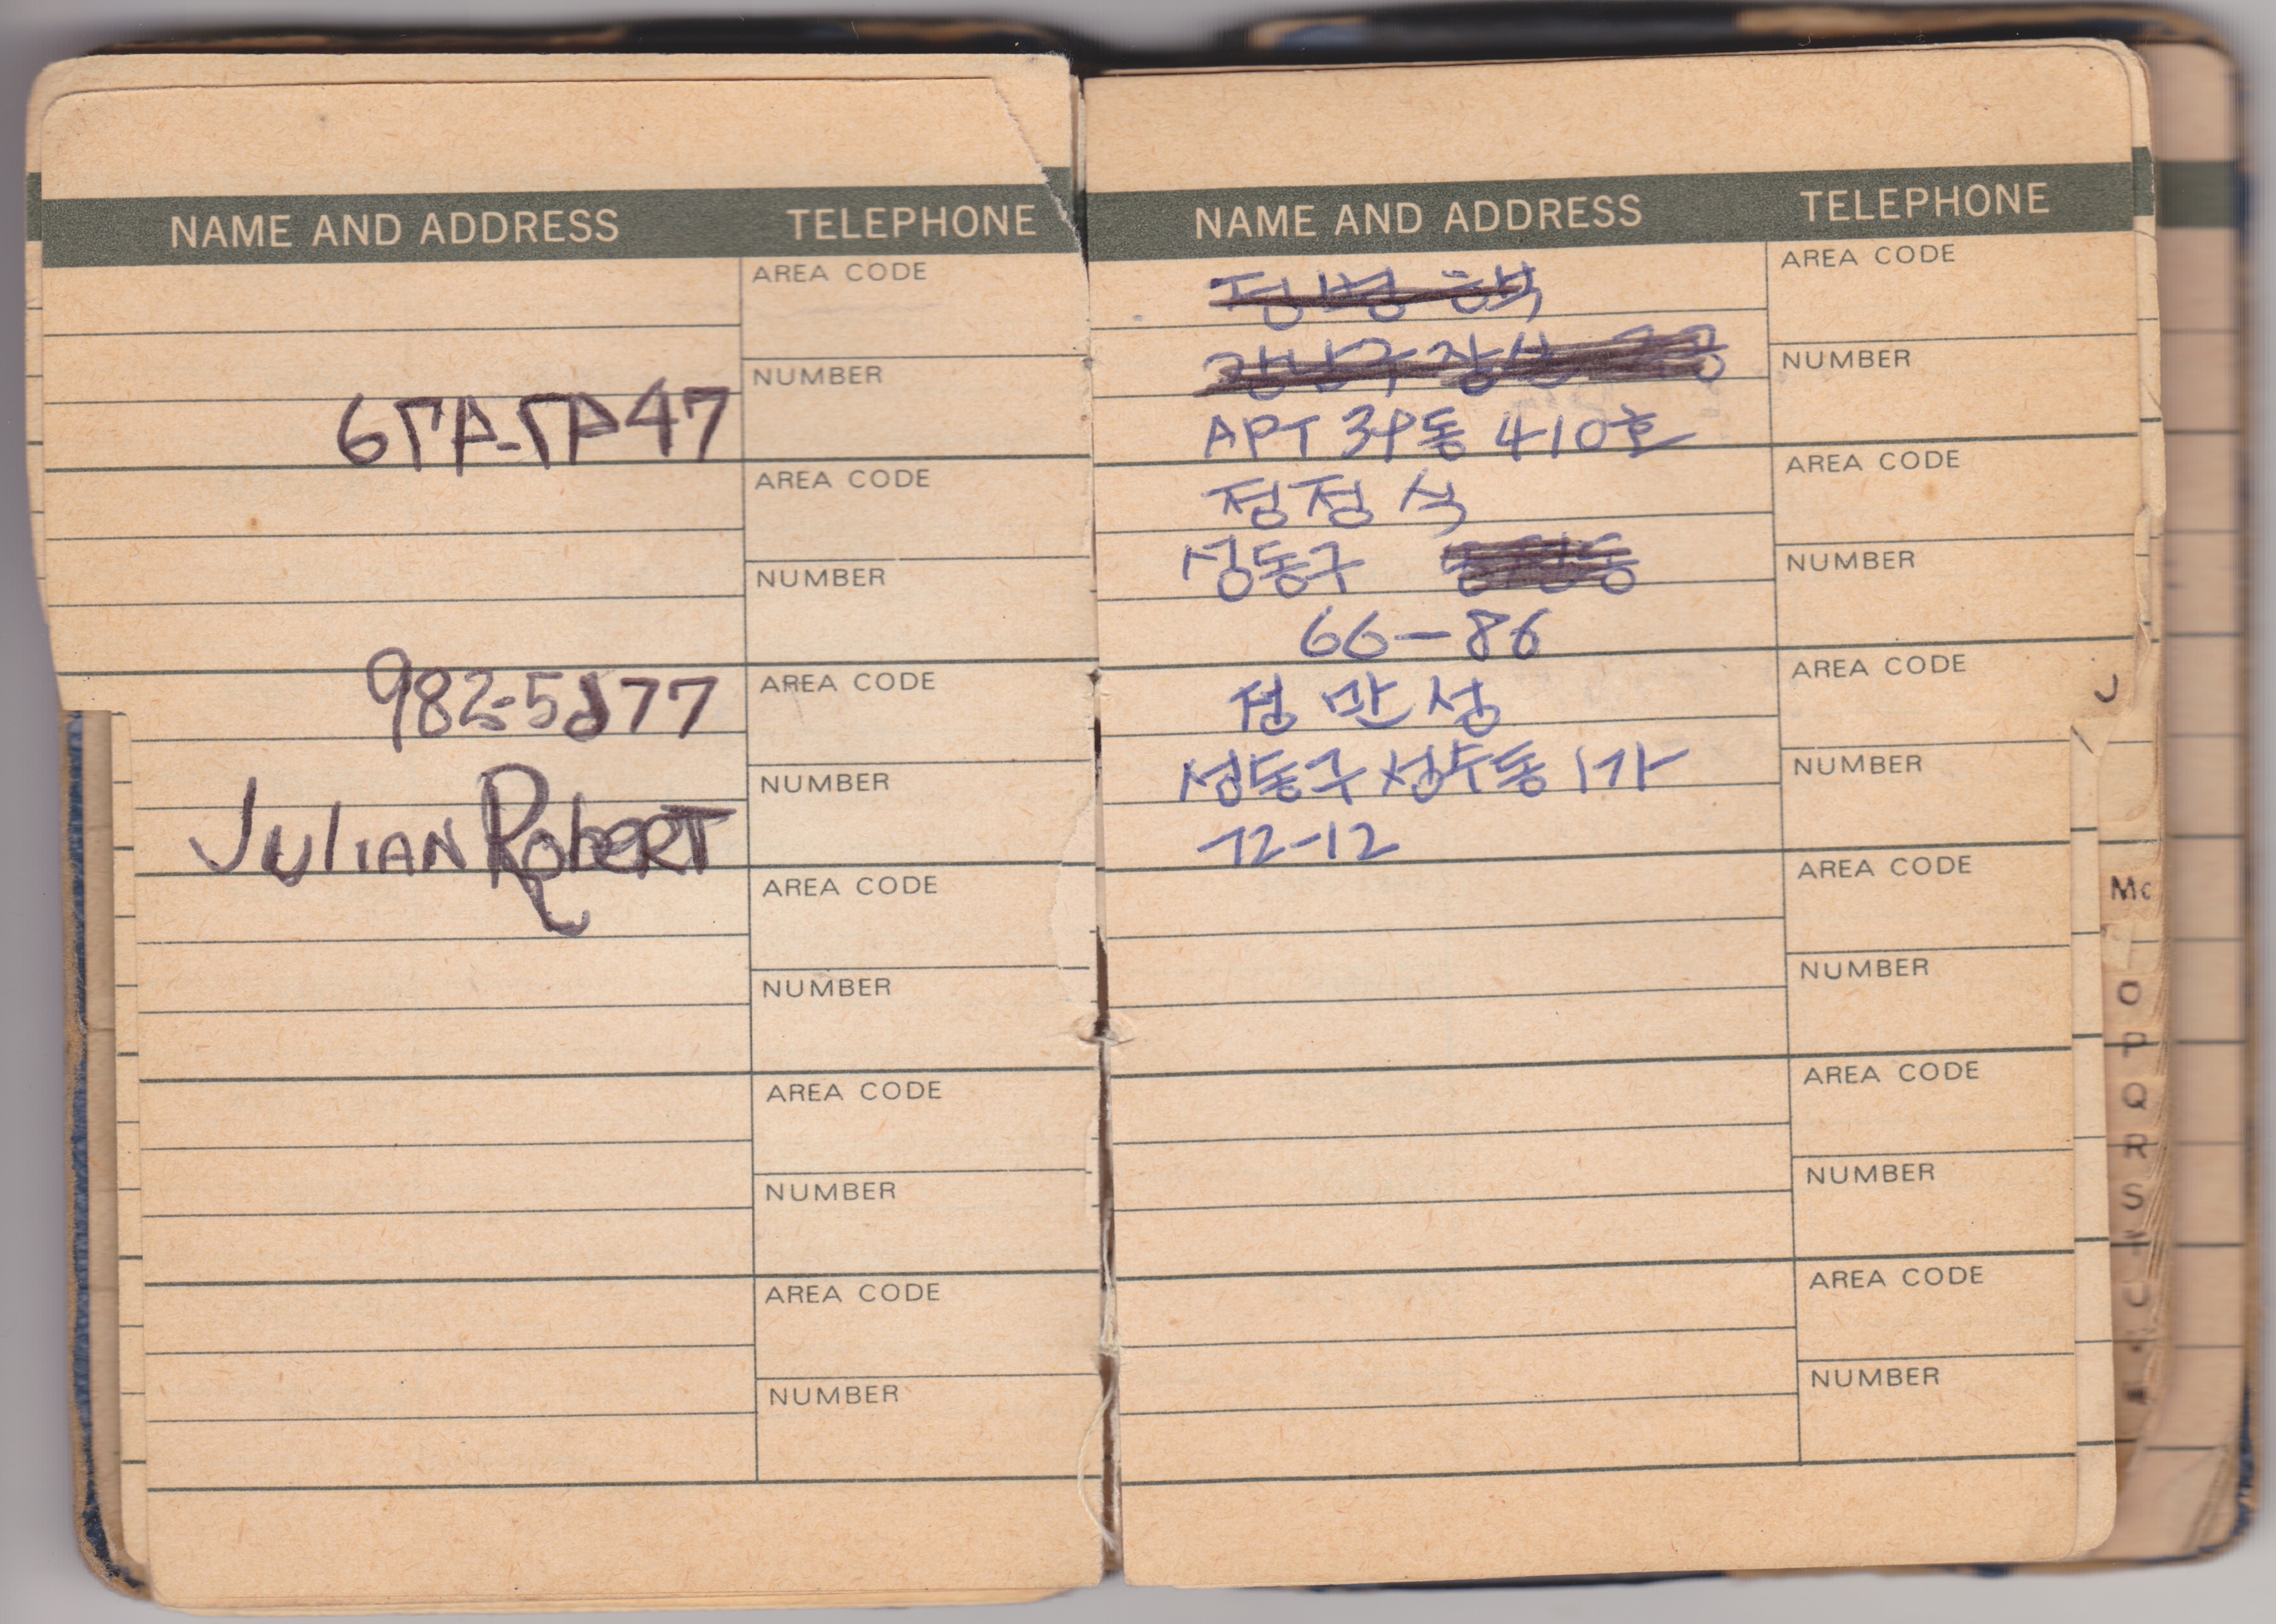 NAME AND ADDRESS TELEPHONE
AREA CODE
NUMBER
AREA CODE
NUMBER
982-5877
AREA CODE
NUMBER
JULIAN RobeRT
AREA CODE
NUMBER
AREA CODE
NUMBER
AREA CODE
NUMBER
NAME AND ADDRESS TELEPHONE
AREA CODE
정병
강남구
NUMBER
APT 39동 410호
AREA CODE
정정식
성동구
NUMBER
66-86
AREA CODE
정만성
성동구 성수동 1가
NUMBER
72-12
AREA CODE
NUMBER
AREA CODE
NUMBER
AREA CODE
NUMBER
J
Mc
O
P
Q
R
S